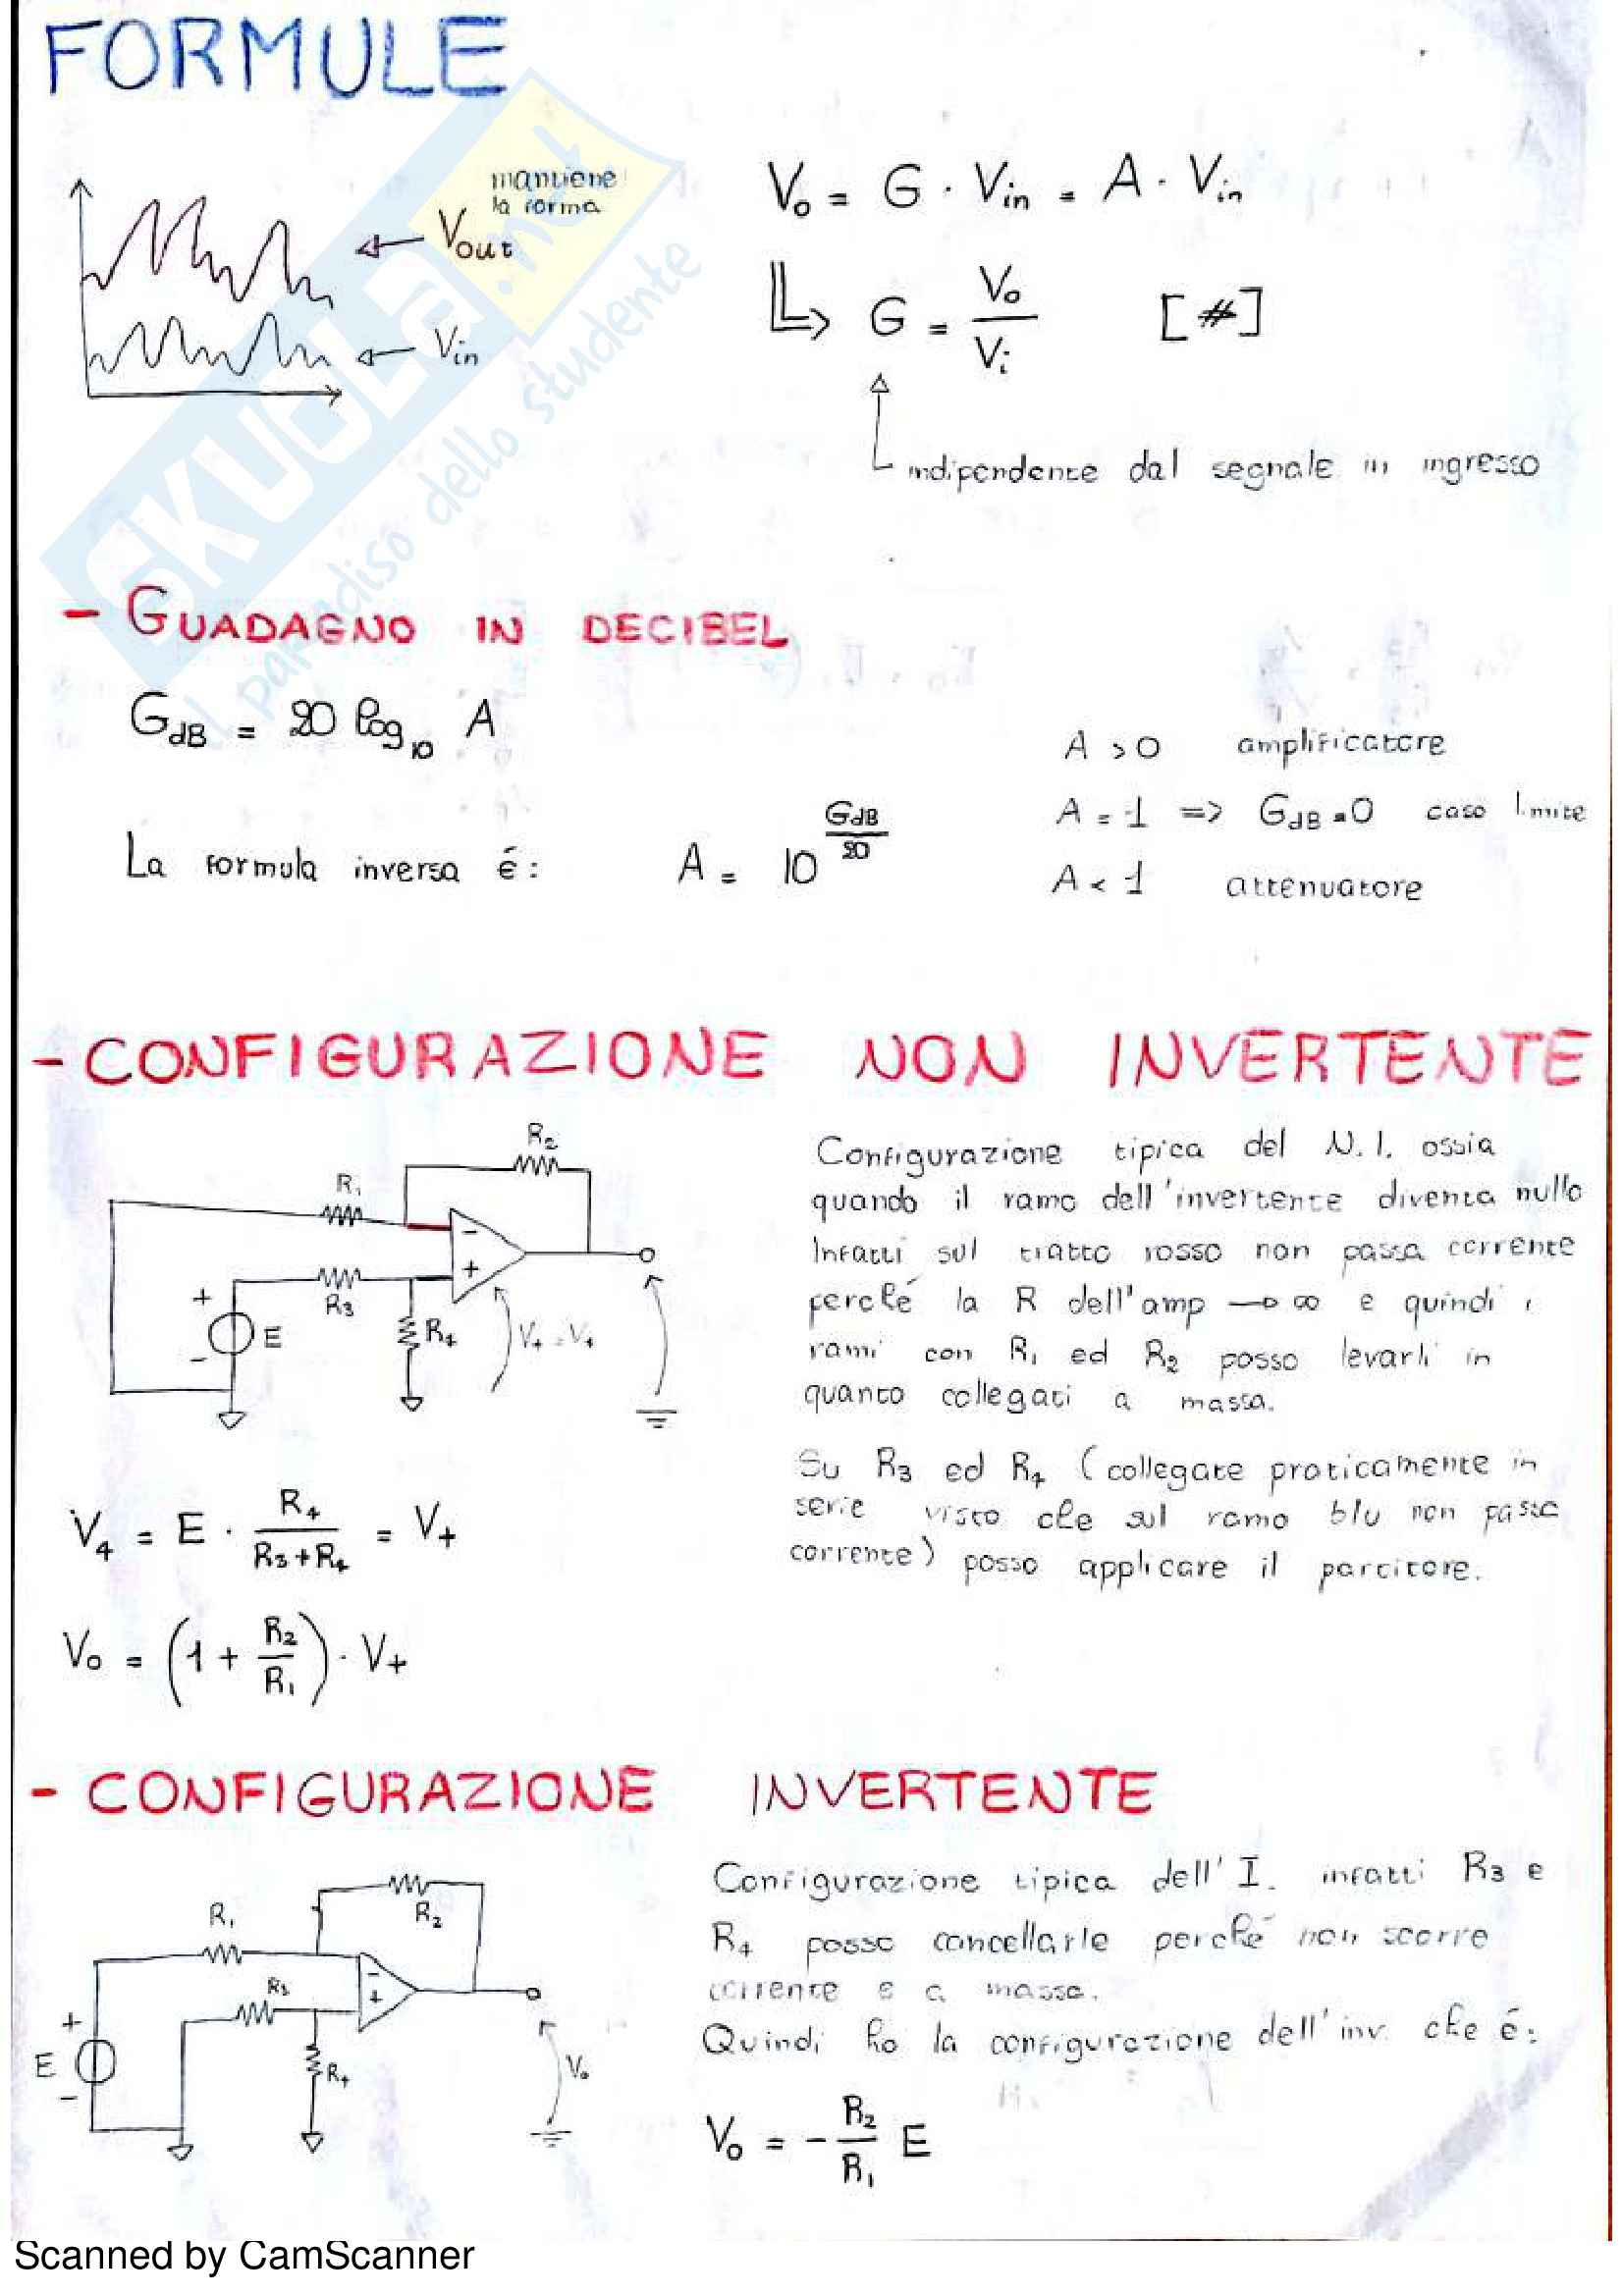 FORMULE
mantiene
la forma
Vout
Vin
V₀ = G · Vin = A · Vin
G = V₀ / Vi [#]
indipendente dal segnale in ingresso
SKUOLA.net
il paradiso dello studente
- GUADAGNO IN DECIBEL
GdB = 20 log₁₀ A
La formula inversa é: A = 10^(GdB/20)
A > 0 amplificatore
A = 1 => GdB = 0 caso limite
A < 1 attenuatore
- CONFIGURAZIONE NON INVERTENTE
R₂
R₁
-
+
R₃
+
E
-
R₄
V₊ = V₄
Configurazione tipica del N.I. ossia
quando il ramo dell'invertente diventa nullo
Infatti sul tratto rosso non passa corrente
perché la R dell'amp → ∞ e quindi i
rami con R₁ ed R₂ posso levarli in
quanto collegati a massa.
Su R₃ ed R₄ (collegate praticamente in
serie visto che sul ramo blu non passa
corrente) posso applicare il partitore.
V₄ = E · R₄ / (R₃ + R₄) = V₊
V₀ = (1 + R₂/R₁) · V₊
- CONFIGURAZIONE INVERTENTE
R₂
R₁
-
+
R₃
+
E
-
R₄
V₀
Configurazione tipica dell'I. infatti R₃ e
R₄ posso cancellarle perché non scorre
corrente e a massa.
Quindi ho la configurazione dell'inv. che é:
V₀ = - R₂/R₁ E
Scanned by CamScanner